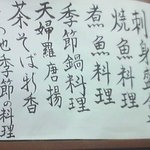 刺身盛合
焼魚料理
煮魚料理
季節鍋料理
天婦羅唐揚
茶そば新香
その他季節の料理